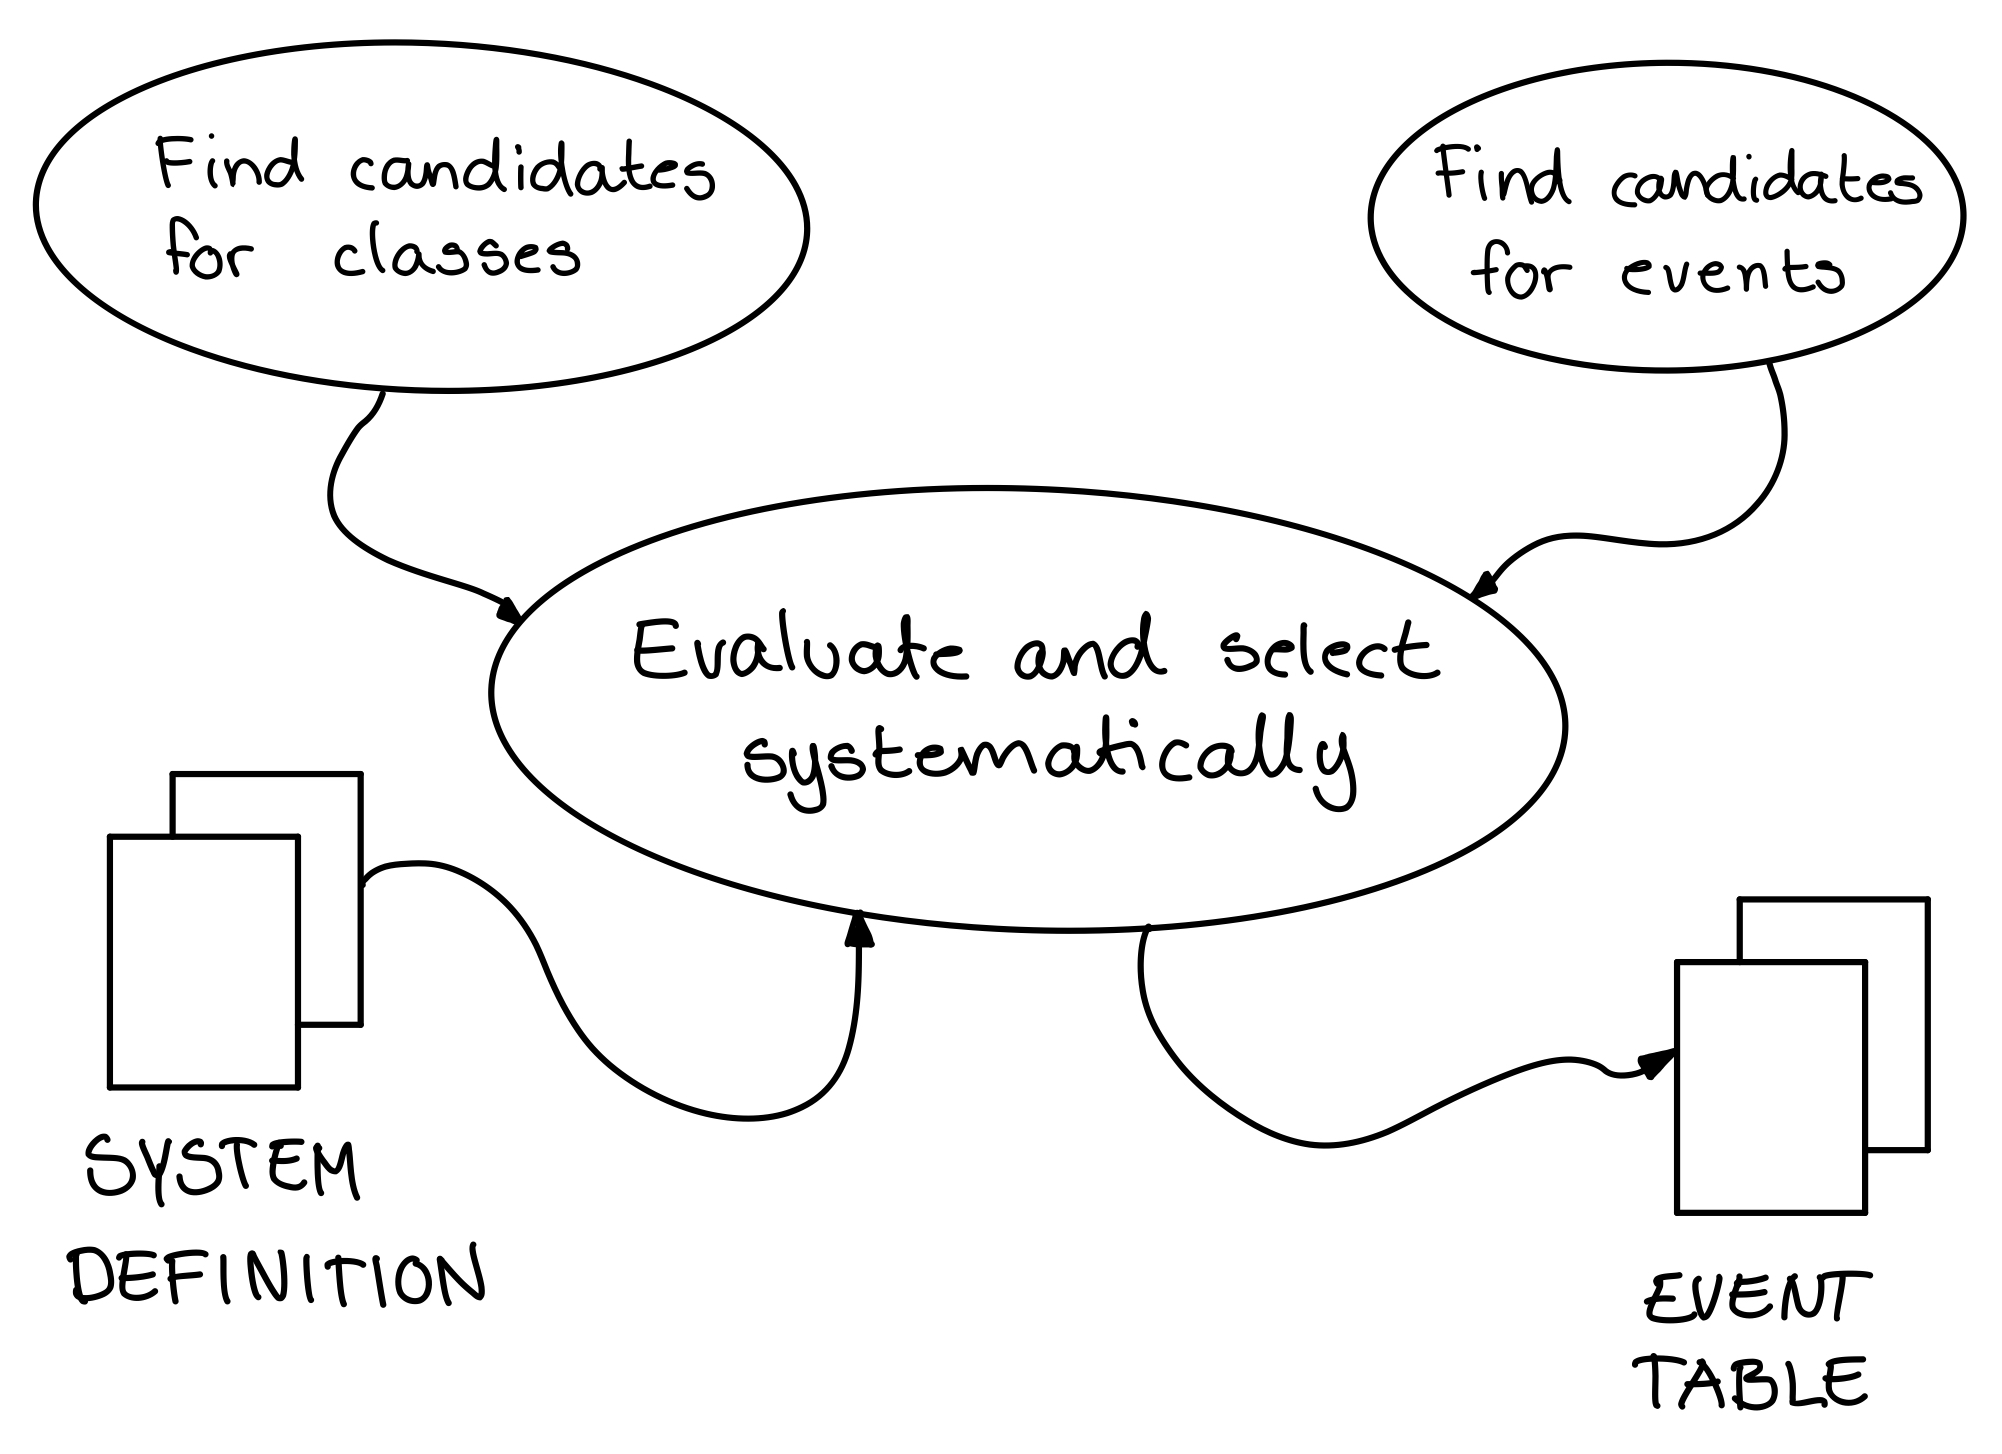 Find candidates
for classes
Find candidates
for events
Evaluate and select
systematically
SYSTEM
DEFINITION
EVENT
TABLE